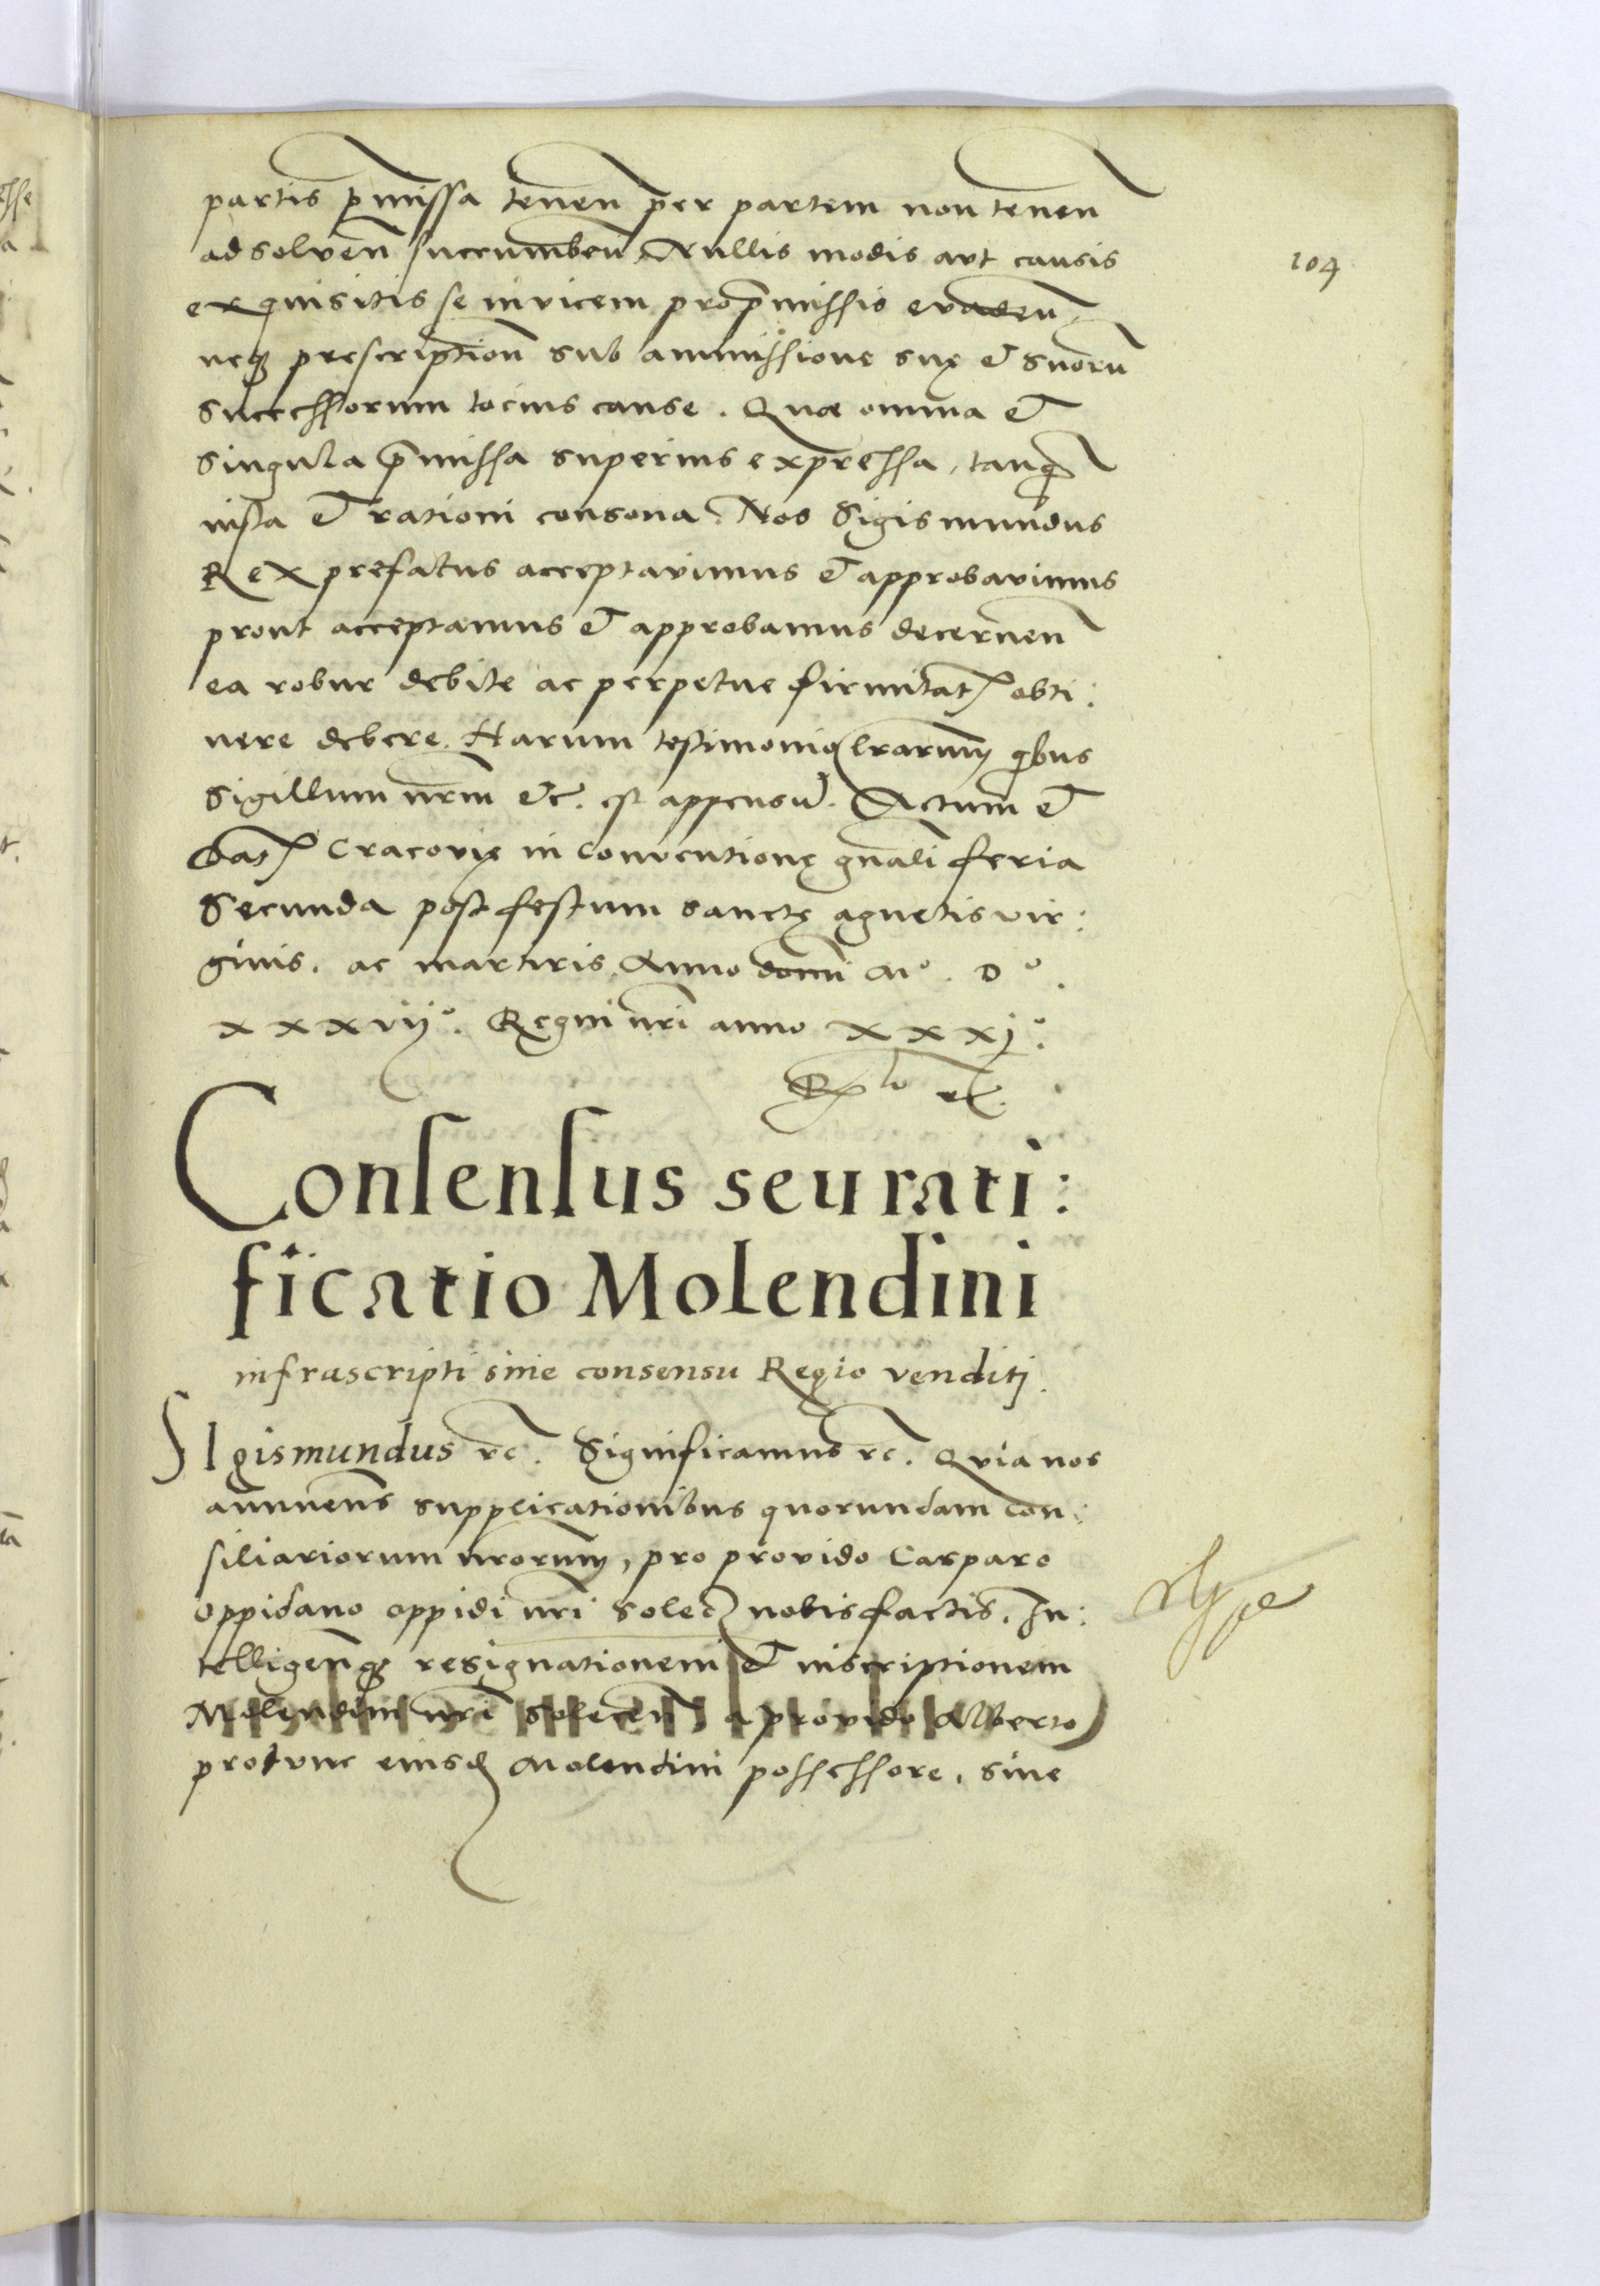 partis p̄missa tenen̄ per partem non tenen̄
ad solven̄ succumben̄. Nullis modis aut causis
exquisitis se invicem pro p̄missis evaden̄
neq₃ prescription̄ sub ammissione suę et suorū
successorum tocius cause. Quæ omnia et
singula p̄missa superius expressa, tanq̄
iusta et rationi consona. Nos Sigismundus
Rex prefatus acceptavimus et approbavimus
prout acceptamus et approbamus decernen̄
ea robur debite ac perpetue firmitat̄ obti:
nere debere. Harum testimonio lrarum, qbus
Sigillum nrm̄ etc. est appensū. Actum et
Dat̄ Cracovię in conventionę gnali feria
Secunda post festum sanctę agnetis vir:
ginis. ac martiris. Anno domi M° . D° .
xxxvij°. Regni nri anno xxxj°.
Consensus seu rati:
ficatio Molendini
infrascripti sine consensu Regio venditj.
SIgismundus rc̄. Significamus rc̄. Quia nos
annuens supplicationibus quorundam con:
siliariorum nrorum, pro provido Casparo
oppidano oppidi nri Solec nobis factis. In:
telligen̄q₃ resignationem et inscriptionem
Molendini nri Solecen̄, a provido Alberto
protunc eiusd̄ Molendini possessore, sine
104